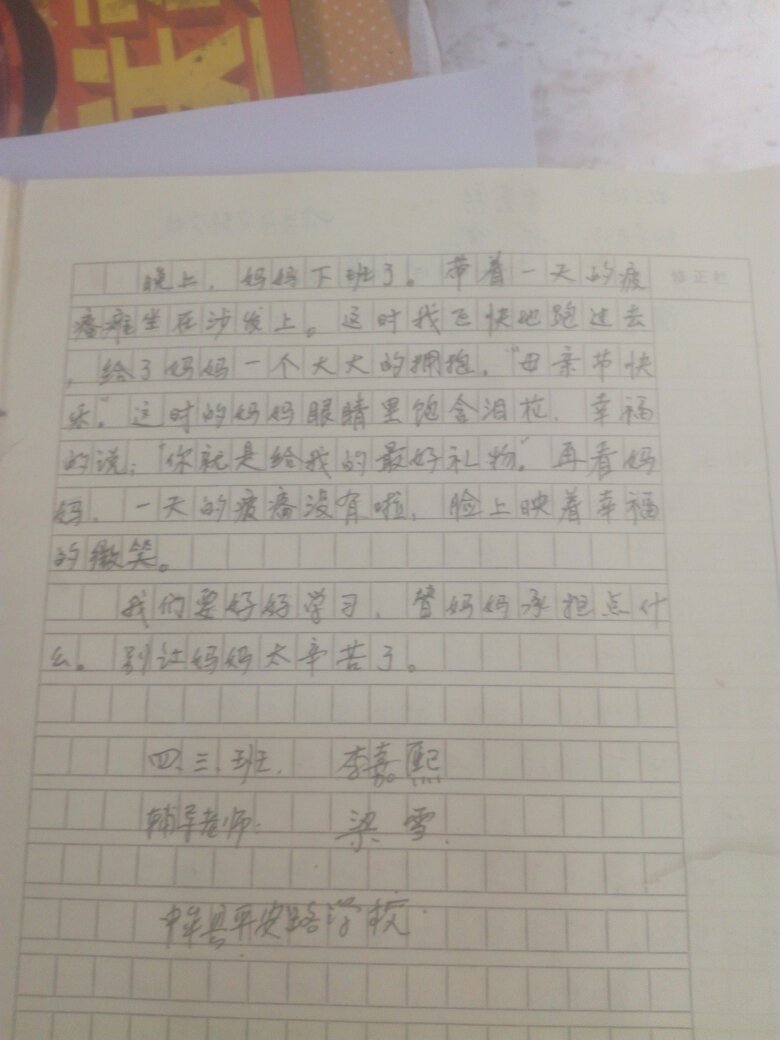 晚上，妈妈下班了。带着一天的疲
瘩瘫坐在沙发上。这时我飞快地跑过去
，给了妈妈一个大大的拥抱，“母亲节快
乐。”这时的妈妈眼睛里饱含泪花，幸福
的说：“你就是给我的最好礼物。”再看妈
妈，一天的疲瘩没有啦，脸上映着幸福
的微笑。
我们要好好学习，替妈妈承担点什
么。别让妈妈太辛苦了。
四、三、班． 李嘉熙
辅导老师： 梁雪．
中牟县平安路学校．
修正栏